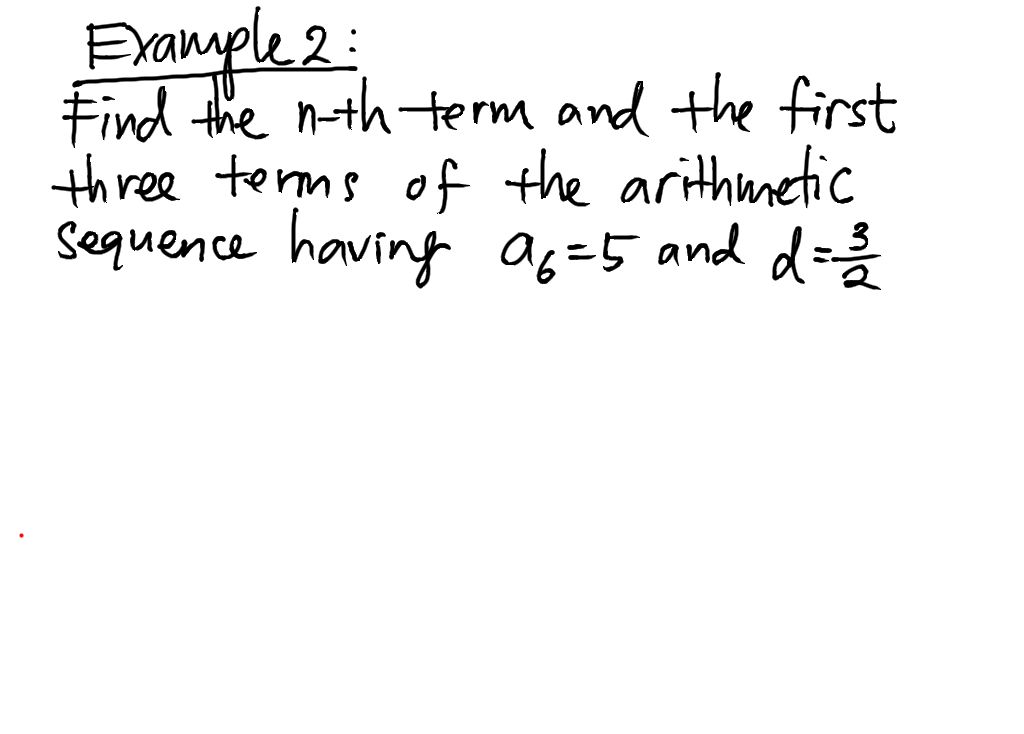 Example 2:
Find the n-th term and the first
three terms of the arithmetic
sequence having a₆=5 and d=3/2